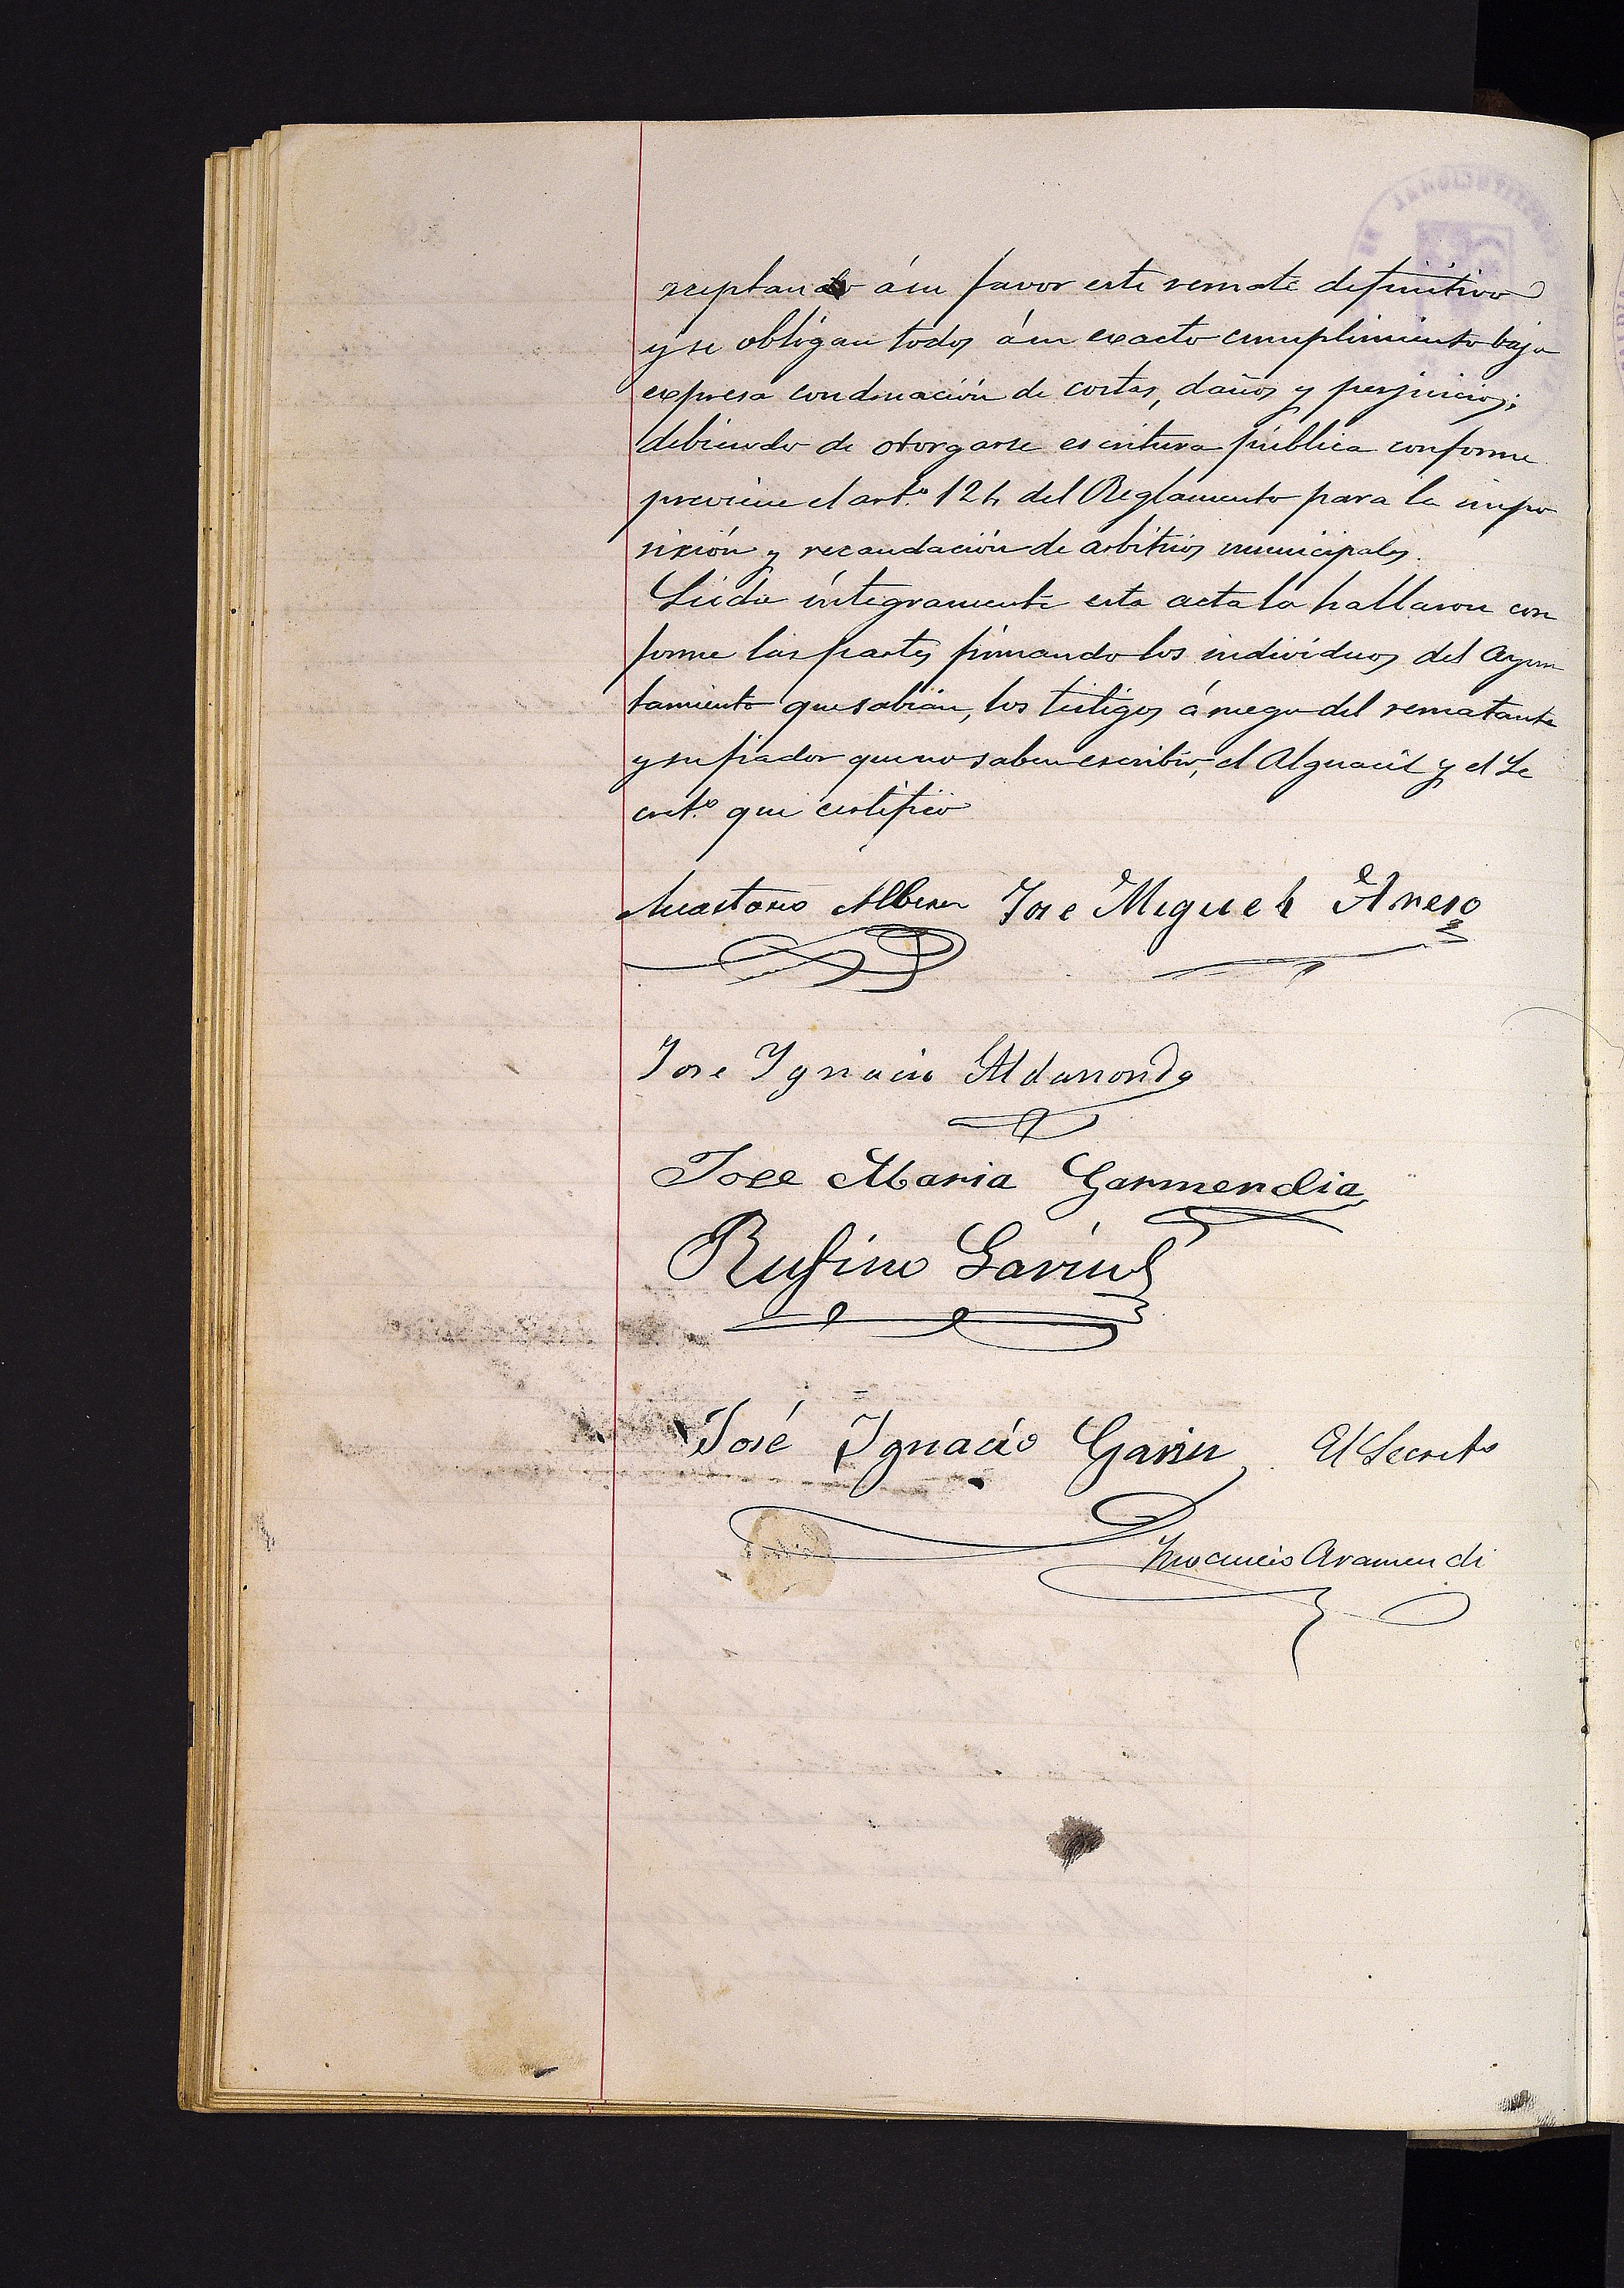 zeptando á su favor este remate definitivo
y se obligan todos á su exacto cumplimiento bajo
expresa condenación de costas, daños y perjuicios;
debiendo de otorgarse escritura pública conforme
previene el art.º 124 del Reglamento para la impo
sición y recaudación de arbitrios municipales.
Leida íntegramente esta acta la hallaron con
forme las partes firmando los individuos del Ayun
tamiento que sabían, los testigos á ruego del rematante
y su fiador que no saben escribir, el Alguacil y el Se
cret.º que certifico
Jose Miguel Areso
Jose Ygnacio Aldanondo
Jose Maria Garmendia
Rufino Garin
José Ygnacio Garin El Secreto
Inocencio Aramendi